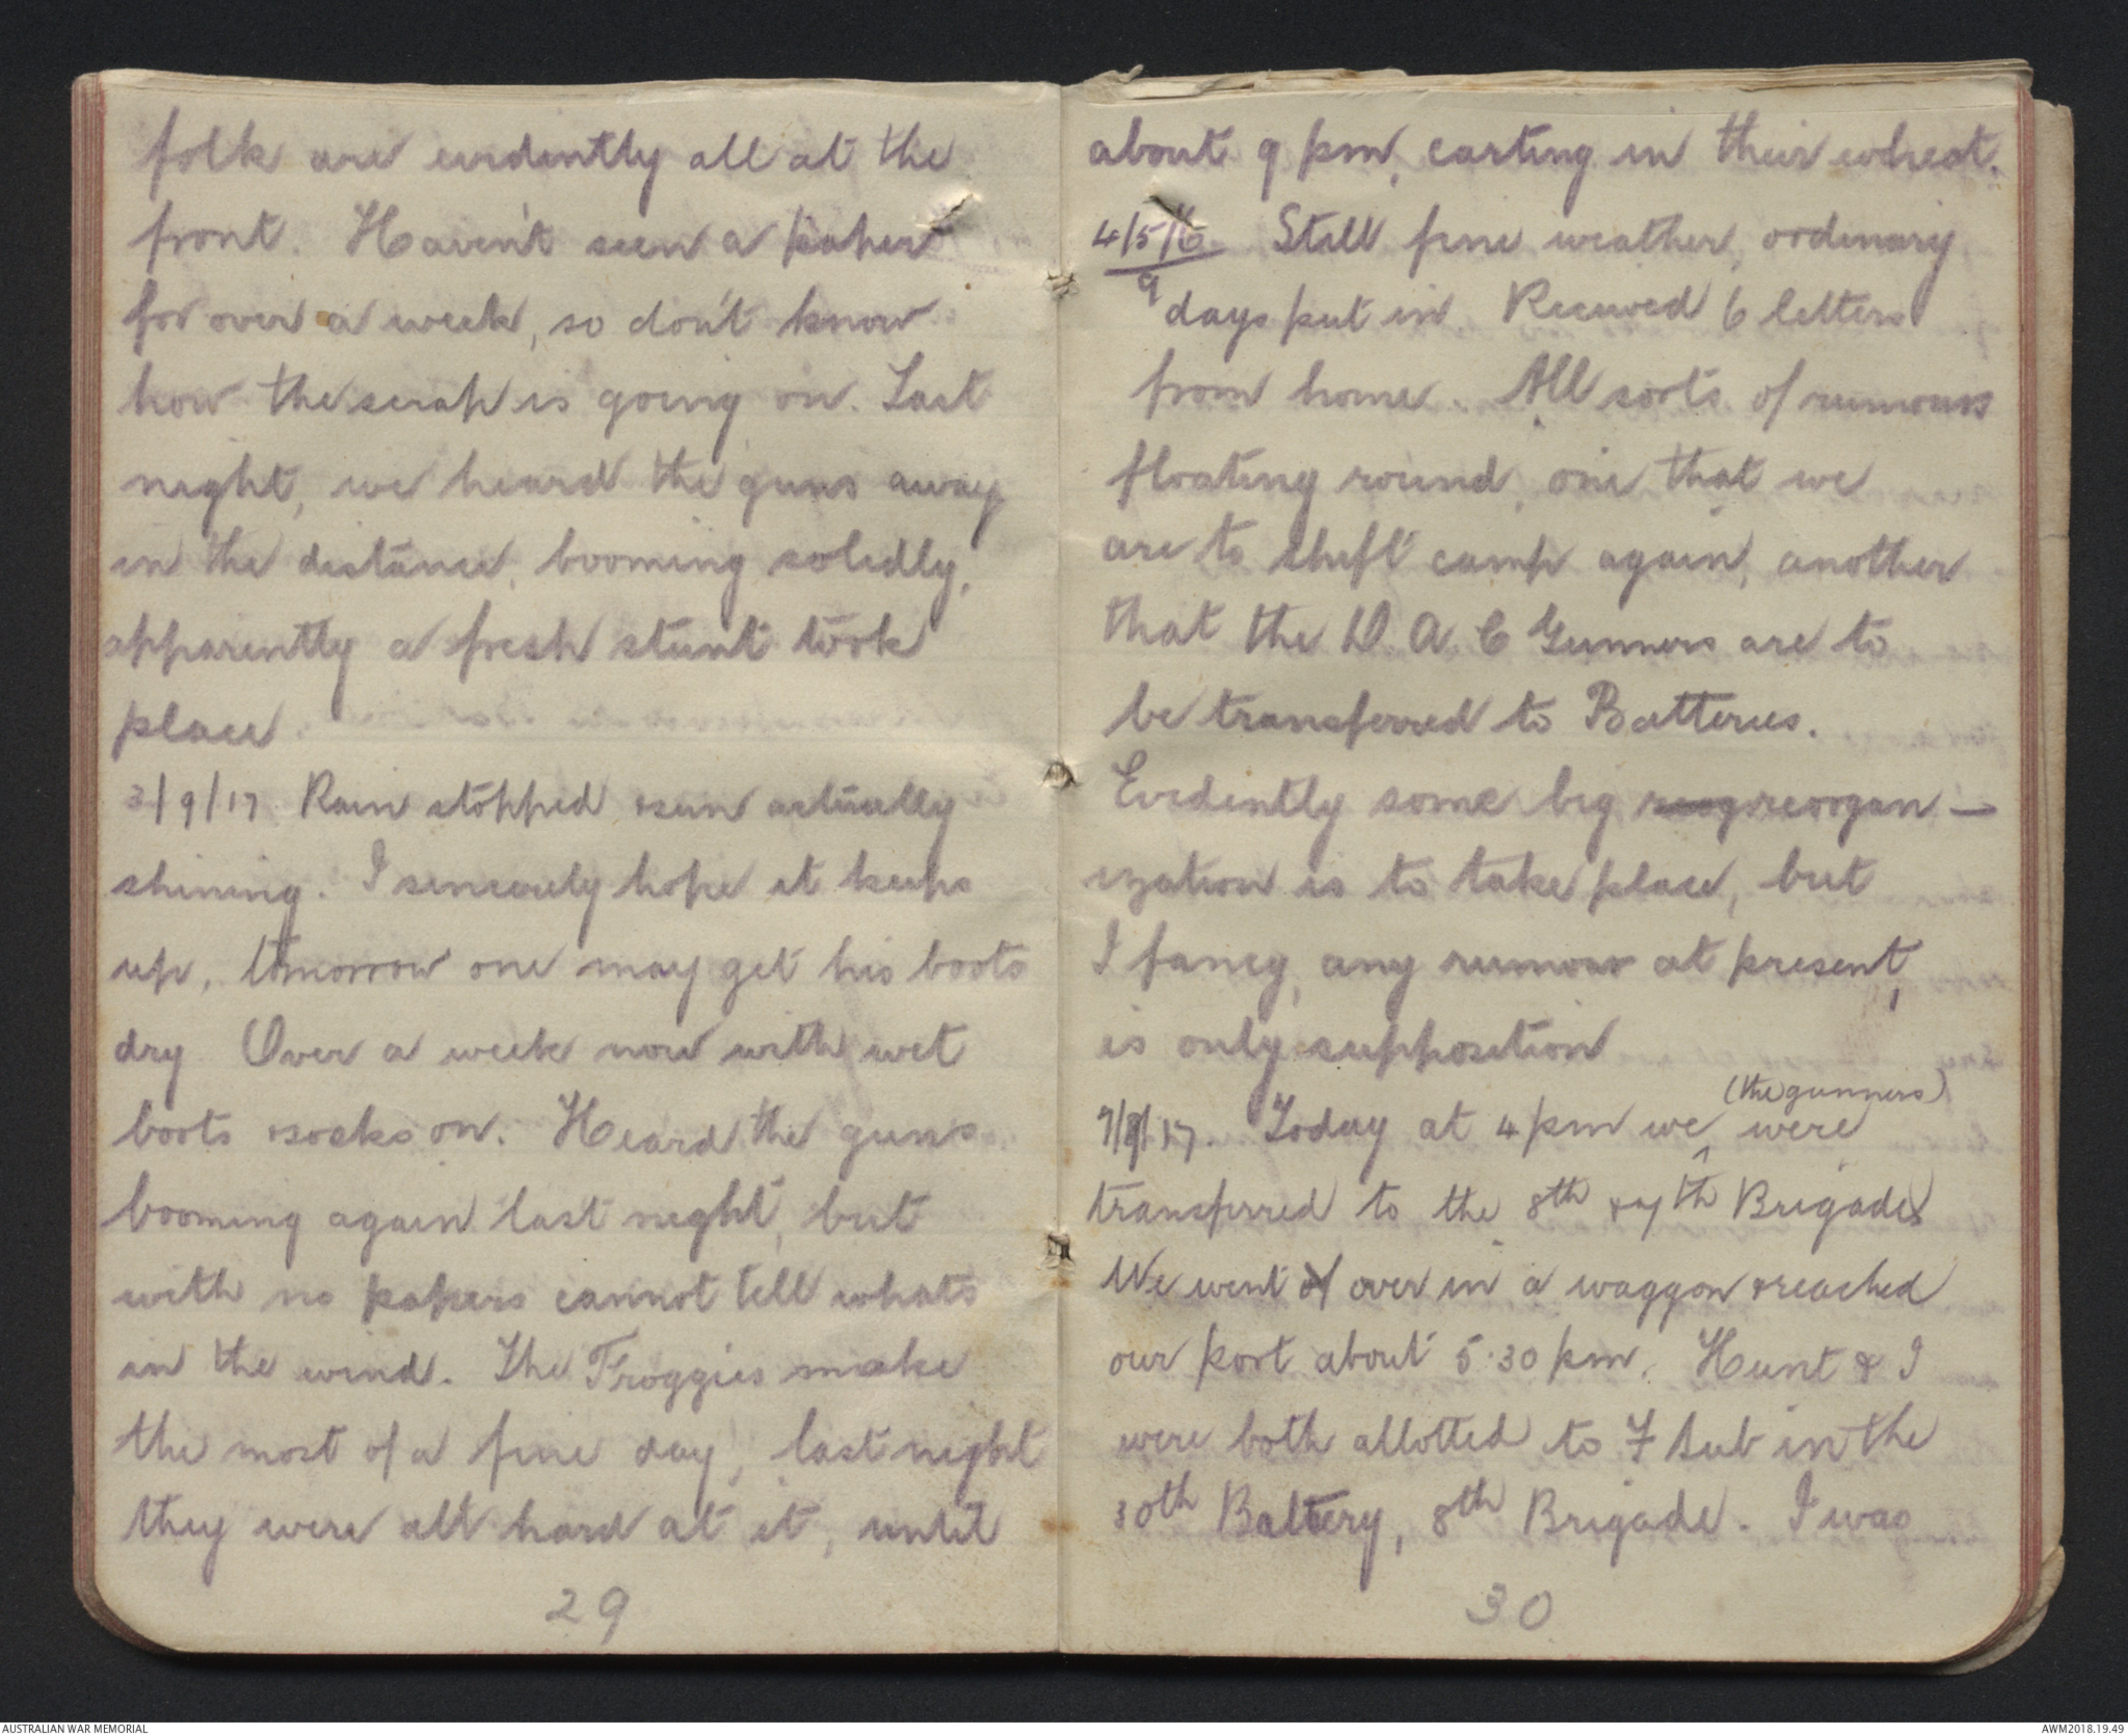 folk are evidently all at the
front. Haven't seen a paper
for over a week, so don't know
how the scrap is going on. Last
night, we heard the guns away
in the distance, booming solidly,
apparently a fresh stunt took
place
3/9/17. Rain stopped & sun actually
shining. I sincerely hope it keeps
up, tomorrow one may get his boots
dry Over a week now with wet
boots & socks on. Heard the guns
booming again last night, but
with no papers cannot tell whats
in the wind. The Froggies make
the most of a fine day, last night
they were all hard at it, until
29
about 9 pm, carting in their wheat.
4/5/6 Still fine weather, ordinary
9
days put in. Received 6 letters
from home. All sorts of rumours
floating round, one that we
are to shift camp again, another
that the D.A.C Gunners are to
be transferred to Batteries.
Evidently some big reorgan-
ization is to take place, but
I fancy, any rumour at present,
is only supposition
(the gunners)
7/9/17. Today at 4 pm we were
transferred to the 8th & 7th Brigades
We went over in a waggon & reached
our post about 5.30 pm. Hunt & I
were both allotted to F Sub in the
30th Battery, 8th Brigade. I was
30
AUSTRALIAN WAR MEMORIAL
AWM2018.19.49